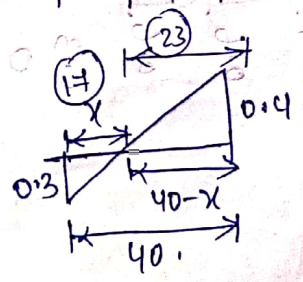 23
17
x
0.4
0.3
40-x
40.